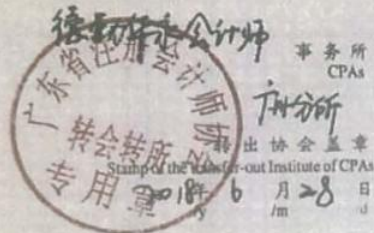 德勤华永会计师
事务所
CPAs
广州分所
转出协会盖章
Stamp of the transfer-out Institute of CPAs
2018年 6 月 28 日
/y /m /d
广东省注册会计师协会
转会转所
专用章